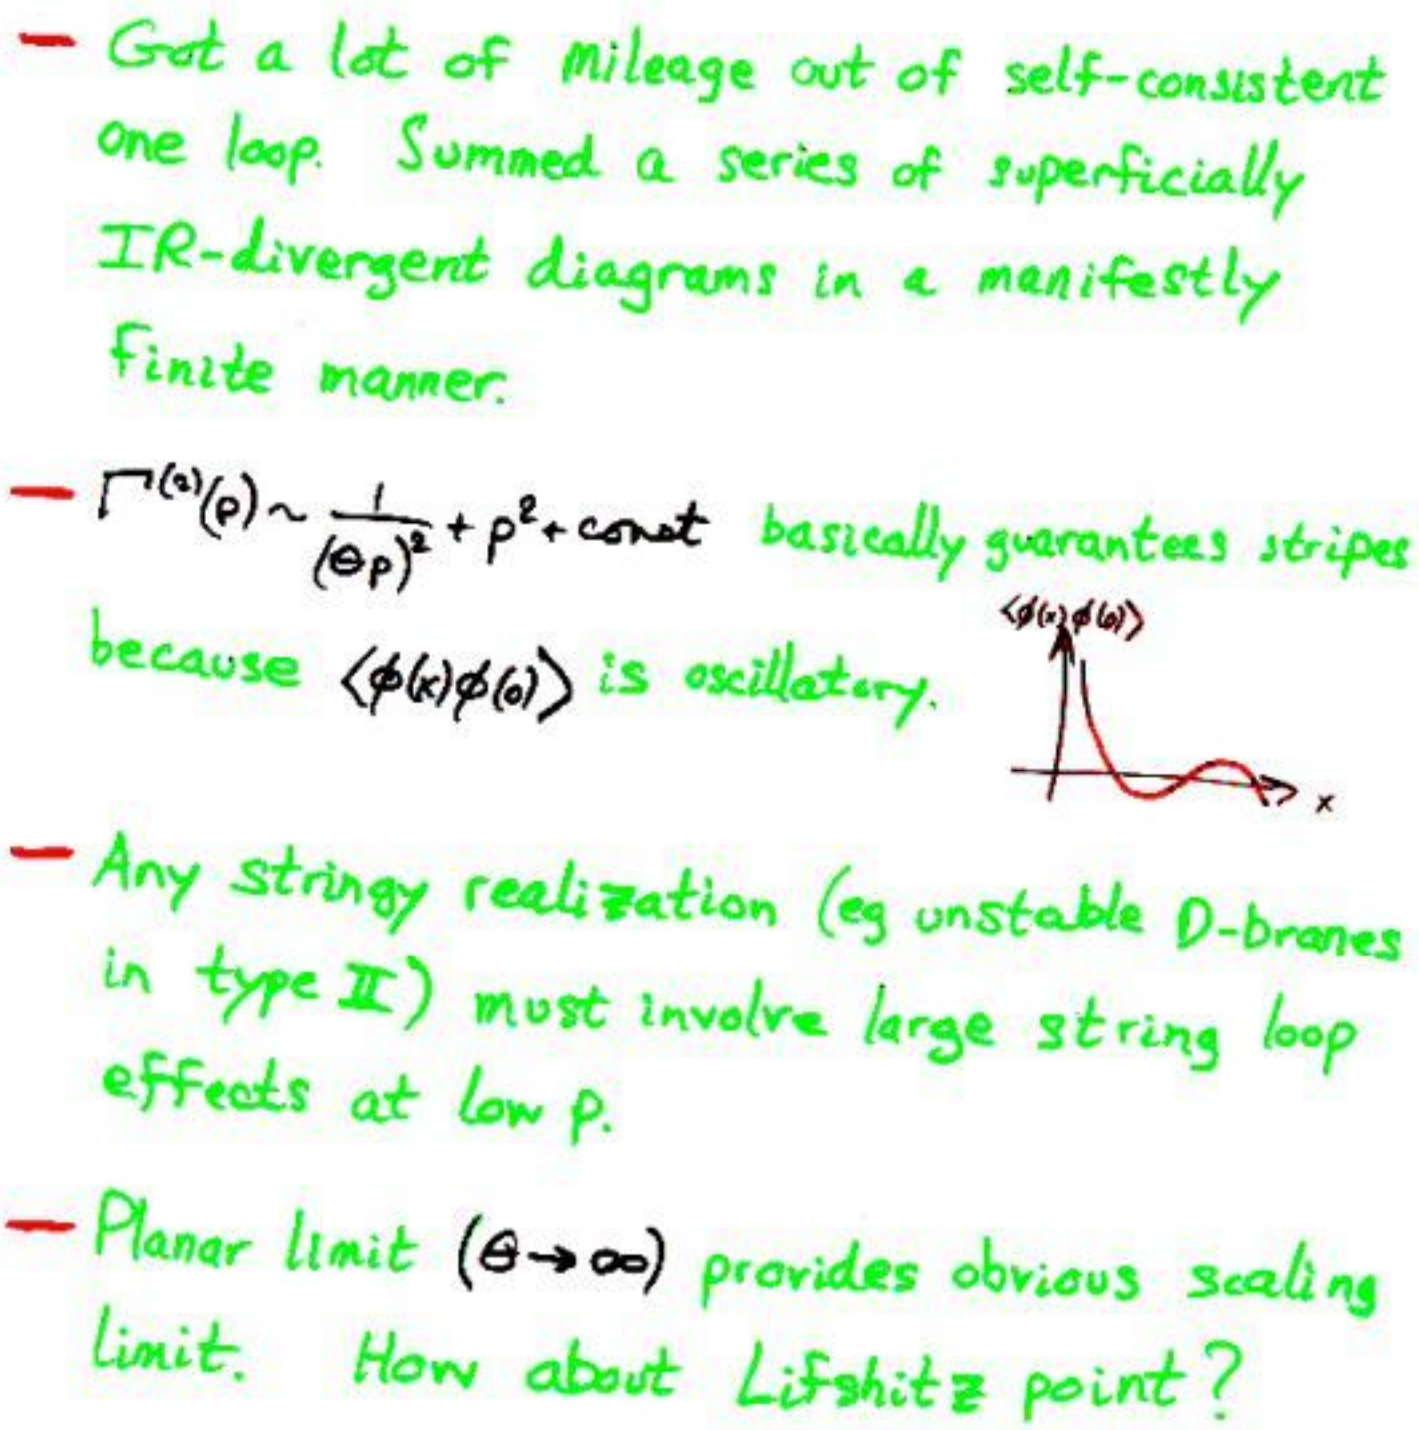 — Got a lot of mileage out of self-consistent
one loop. Summed a series of superficially
IR-divergent diagrams in a manifestly
finite manner.
— Γ⁽²⁾(p) ~ 1/(θp)² + p² + const basically guarantees stripes
because ⟨ϕ(x)ϕ(0)⟩ is oscillatory.
⟨ϕ(x)ϕ(0)⟩
x
— Any stringy realization (eg unstable D-branes
in type II) must involve large string loop
effects at low p.
— Planar limit (θ→∞) provides obvious scaling
limit. How about Lifshitz point?